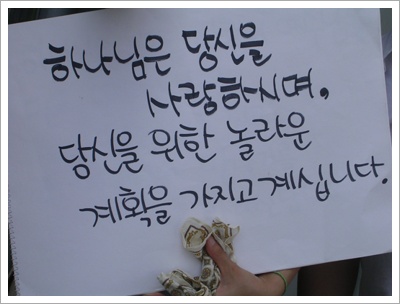 하나님은 당신을
사랑하시며,
당신을 위한 놀라운
계획을 가지고 계십니다.